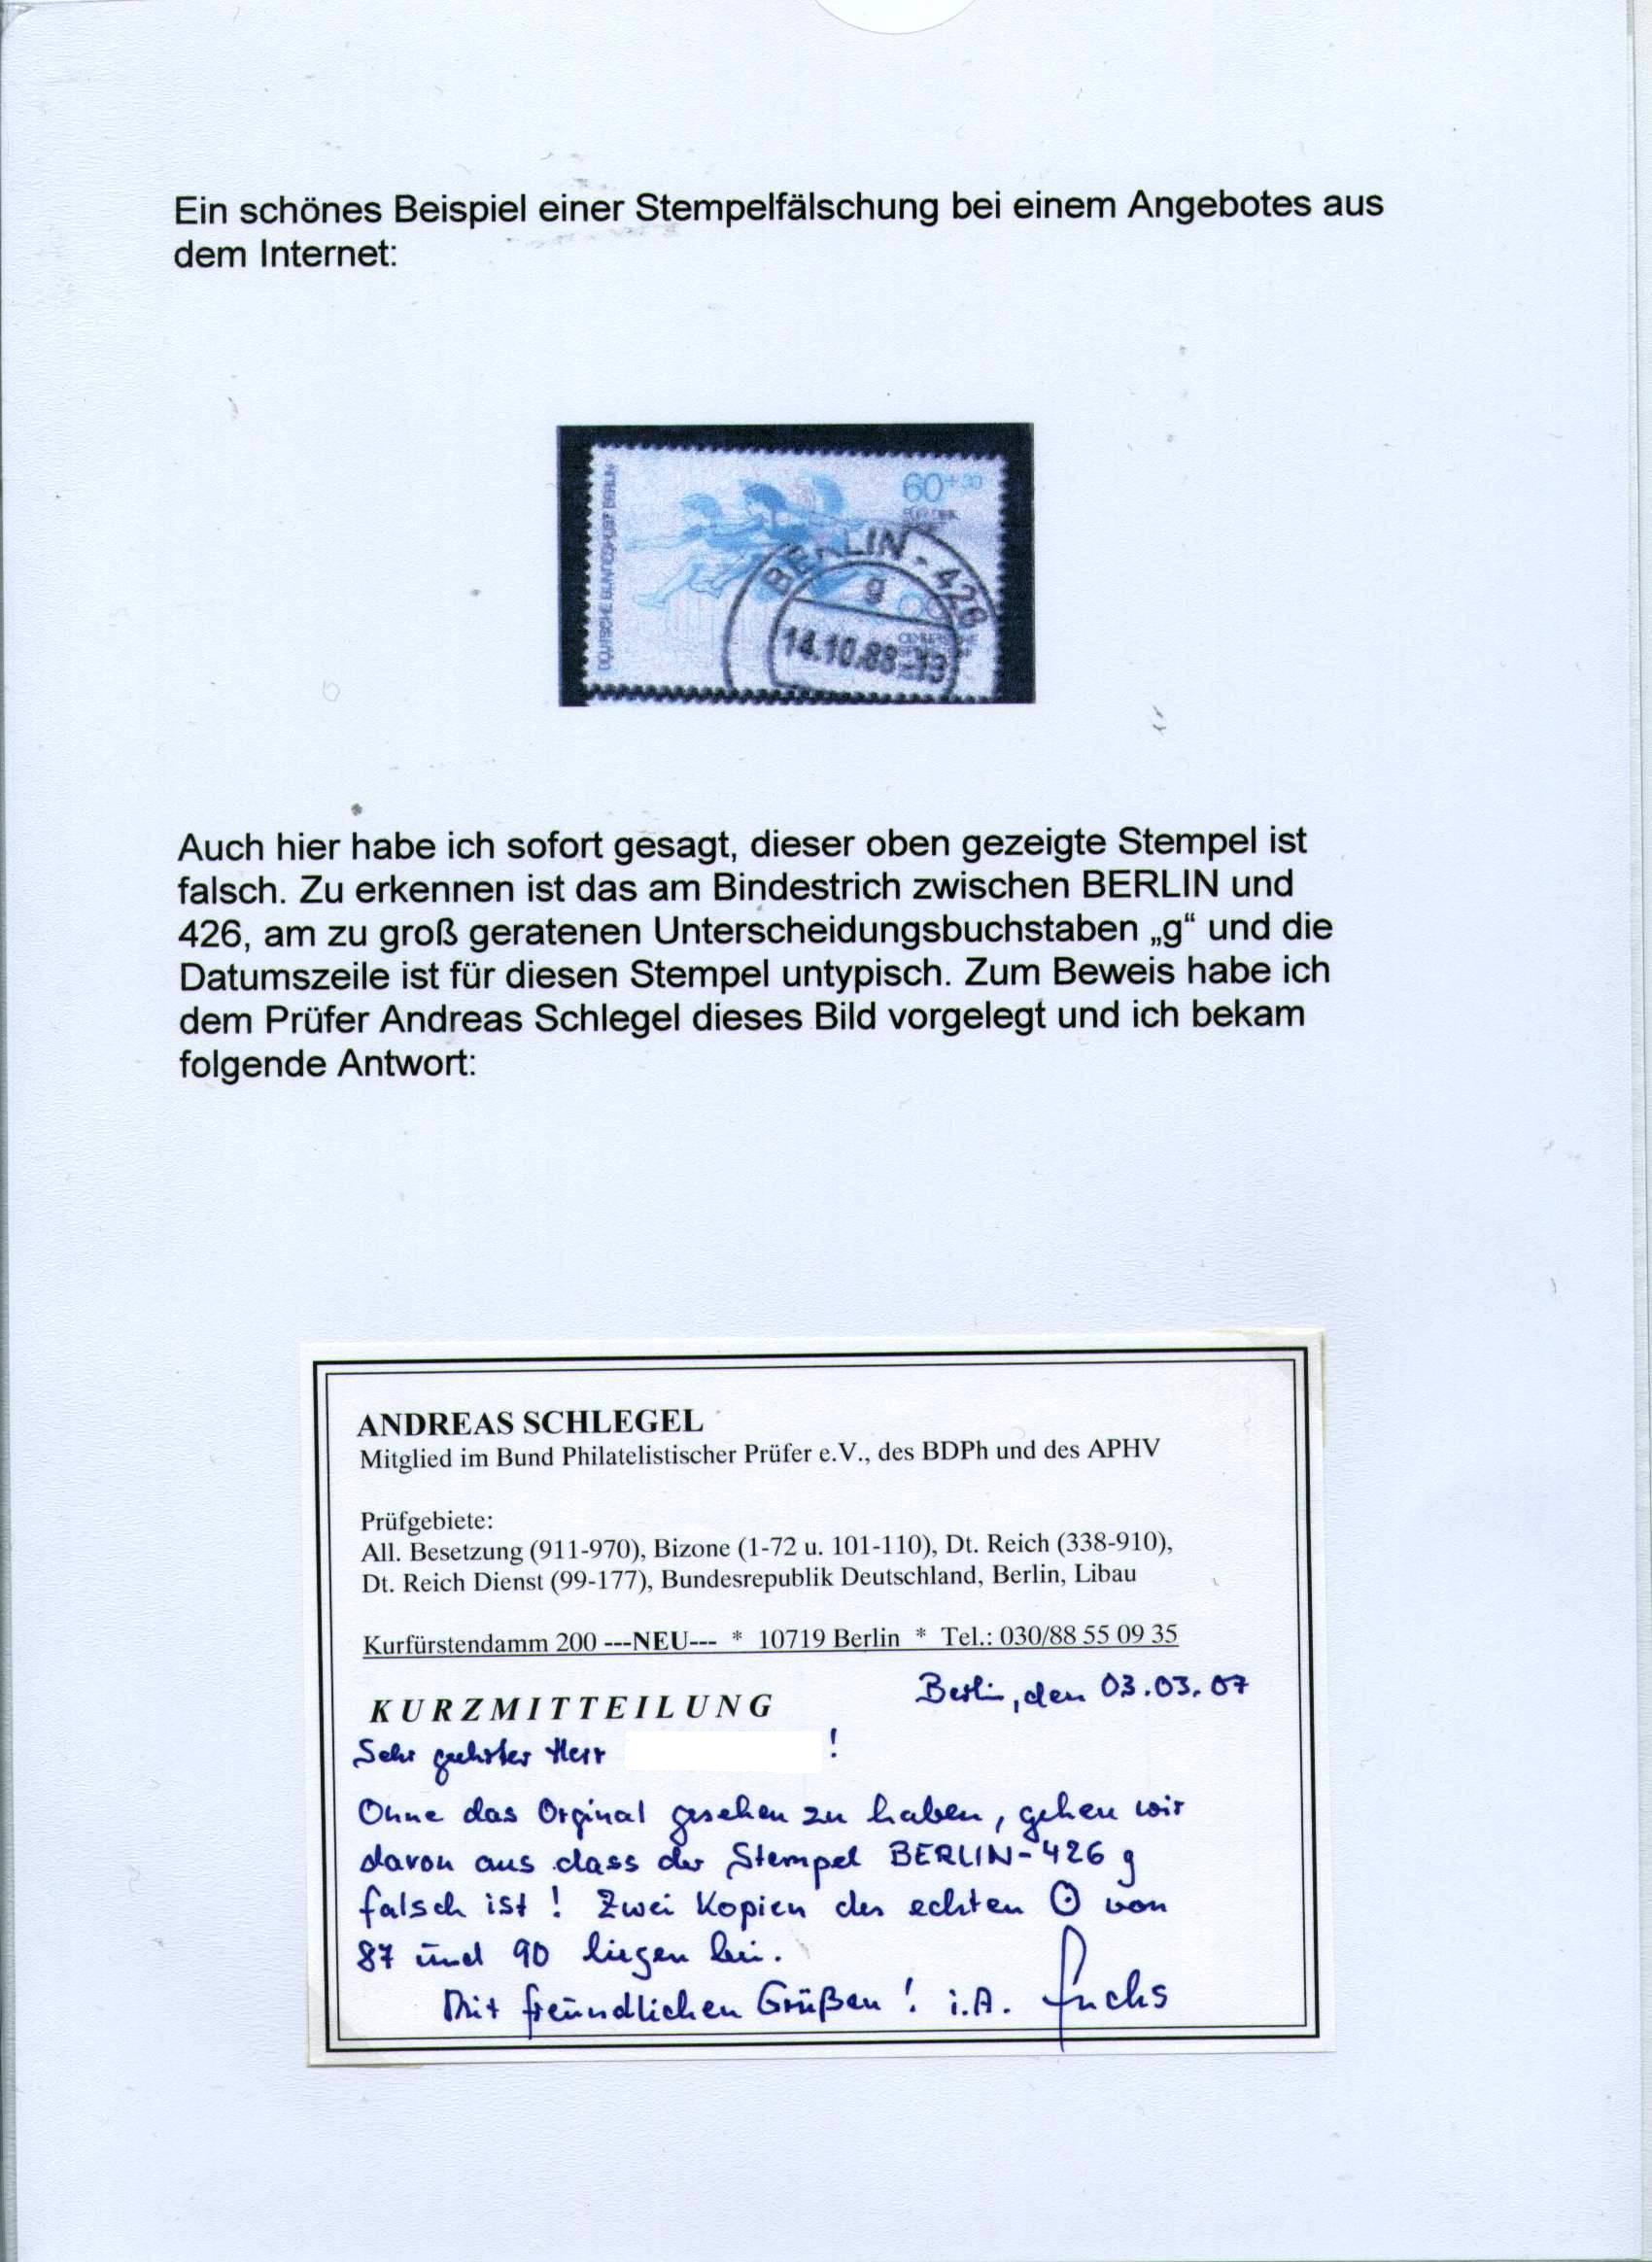 Ein schönes Beispiel einer Stempelfälschung bei einem Angebotes aus
dem Internet:
60+30
DEUTSCHE BUNDESPOST BERLIN
BERLIN - 426
g
14.10.88-13
Auch hier habe ich sofort gesagt, dieser oben gezeigte Stempel ist
falsch. Zu erkennen ist das am Bindestrich zwischen BERLIN und
426, am zu groß geratenen Unterscheidungsbuchstaben „g“ und die
Datumszeile ist für diesen Stempel untypisch. Zum Beweis habe ich
dem Prüfer Andreas Schlegel dieses Bild vorgelegt und ich bekam
folgende Antwort:
ANDREAS SCHLEGEL
Mitglied im Bund Philatelistischer Prüfer e.V., des BDPh und des APHV
Prüfgebiete:
All. Besetzung (911-970), Bizone (1-72 u. 101-110), Dt. Reich (338-910),
Dt. Reich Dienst (99-177), Bundesrepublik Deutschland, Berlin, Libau
Kurfürstendamm 200 ---NEU--- * 10719 Berlin * Tel.: 030/88 55 09 35
Berlin, den 03.03.07
KURZMITTEILUNG
Sehr geehrter Herr !
Ohne das Orginal gesehen zu haben, gehen wir
davon aus dass der Stempel BERLIN-426 g
falsch ist! Zwei Kopien des echten ʘ von
87 und 90 liegen bei.
Mit freundlichen Grüßen! i.A. Fuchs